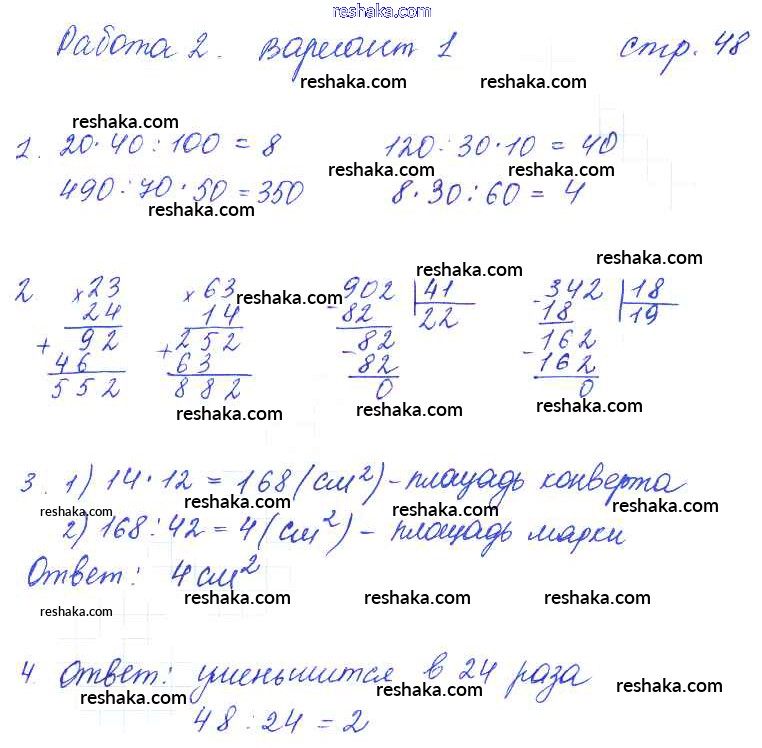 reshaka.com
Работа 2. Вариант 1 стр. 48
reshaka.com reshaka.com
reshaka.com
1. 20·40:100=8 120:30·10=40
reshaka.com reshaka.com
490:70·50=350 8·30:60=4
reshaka.com
reshaka.com
2 ×23 ×63 -902 |41 -342 |18
reshaka.com reshaka.com
24 14 82 22 18 19
+ 92 +252 -82 -162
46 63 82 162
552 882 0 0
reshaka.com reshaka.com reshaka.com reshaka.com
3. 1) 14·12=168(см²)-площадь конверта
reshaka.com reshaka.com reshaka.com
2) 168:42=4(см²)- площадь марки
Ответ: 4см²
reshaka.com reshaka.com reshaka.com reshaka.com
4. Ответ: уменьшится в 24 раза
reshaka.com reshaka.com reshaka.com
48:24=2